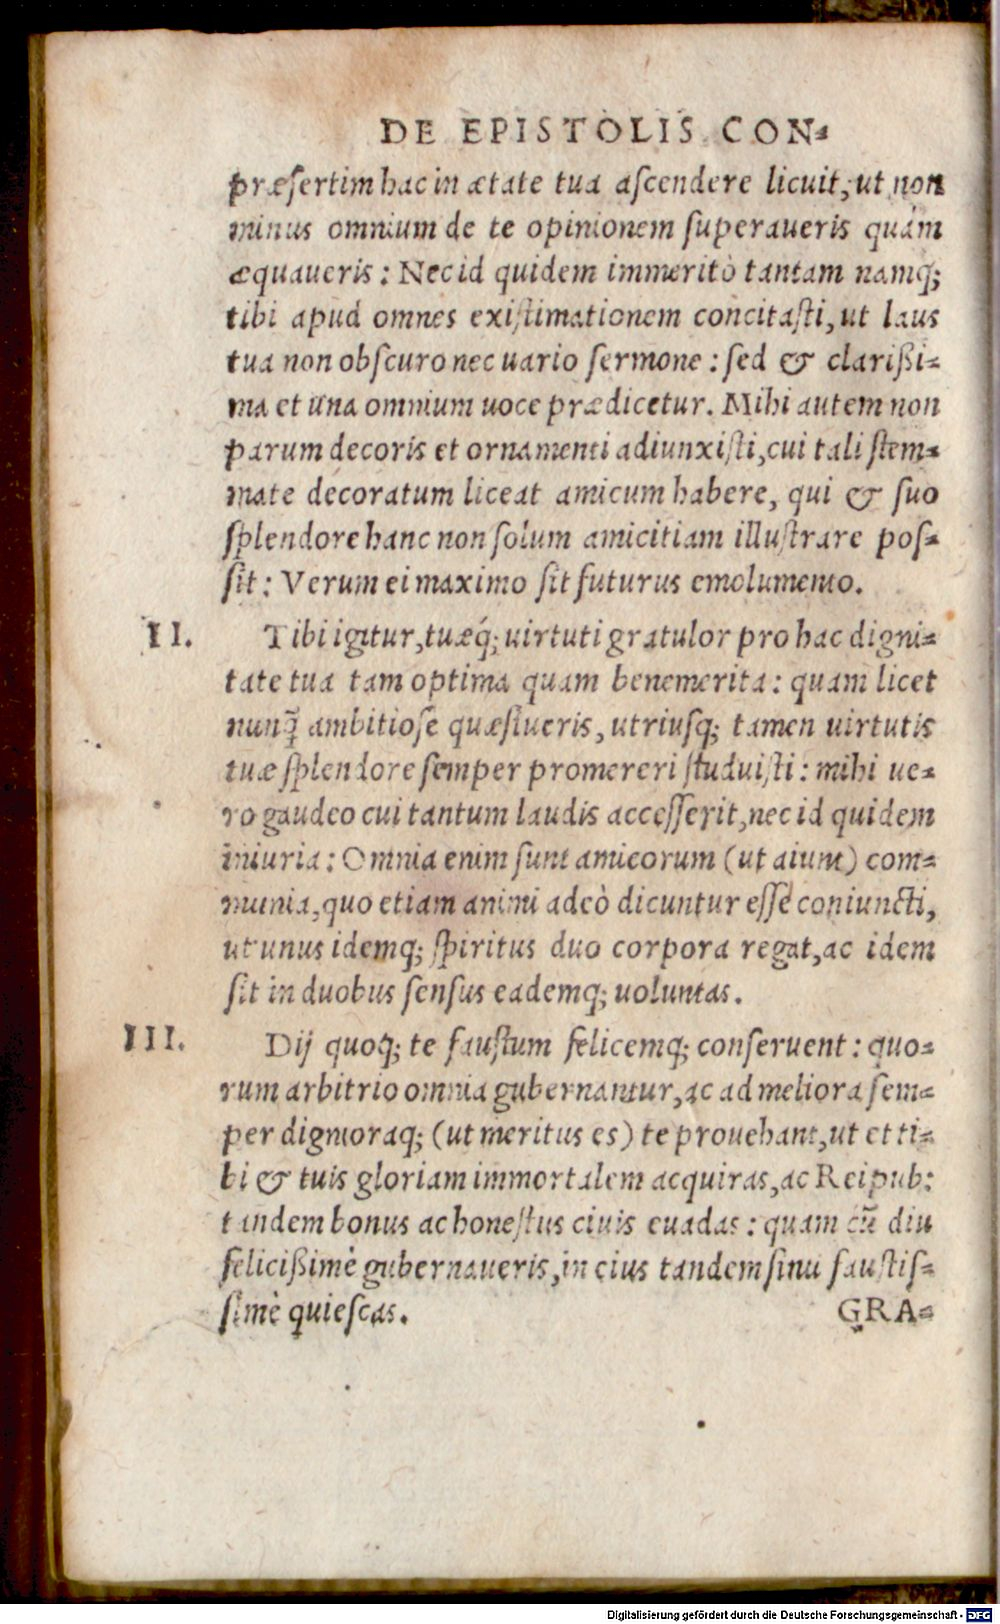 DE EPISTOLIS CON-
præsertim hac in ætate tua ascendere licuit, ut non
minus omnium de te opinionem superaueris quám
æquaueris: Nec id quidem immeritò tantam namq;
tibi apud omnes existimationem concitasti, ut laus
tua non obscuro nec uario sermone: sed & clarißi-
ma et una omnium uoce prædicetur. Mihi autem non
parum decoris et ornamenti adiunxisti, cui tali stem-
mate decoratum liceat amicum habere, qui & suo
splendore hanc non solum amicitiam illustrare pos-
sit: Verum ei maximo sit futurus emolumento.
II. Tibi igitur, tuæq́; uirtuti gratulor pro hac digni-
tate tua tam optima quam benemerita: quam licet
nunq̃ ambitiose quæsiueris, utriusq; tamen uirtutis
tuæ splendore semper promereri studuisti: mihi ue-
ro gaudeo cui tantum laudis accesserit, nec id quidem
iniuria: Omnia enim sunt amicorum (ut aiunt) com-
munia, quo etiam animi adeò dicuntur esse coniuncti,
ut unus idemq; spiritus duo corpora regat, ac idem
sit in duobus sensus eademq; uoluntas.
III. Dij quoq; te faustum felicemq; conseruent: quo-
rum arbitrio omnia gubernantur, ac ad meliora sem-
per dignioraq; (ut meritus es) te prouehant, ut et ti-
bi & tuis gloriam immortalem acquiras, ac Reipub:
tandem bonus ac honestus ciuis euadas: quam cũ diu
felicißimè gubernaueris, in eius tandem sinu faustis-
simè quiescas. GRA-
Digitalisierung gefördert durch die Deutsche Forschungsgemeinschaft - DFG